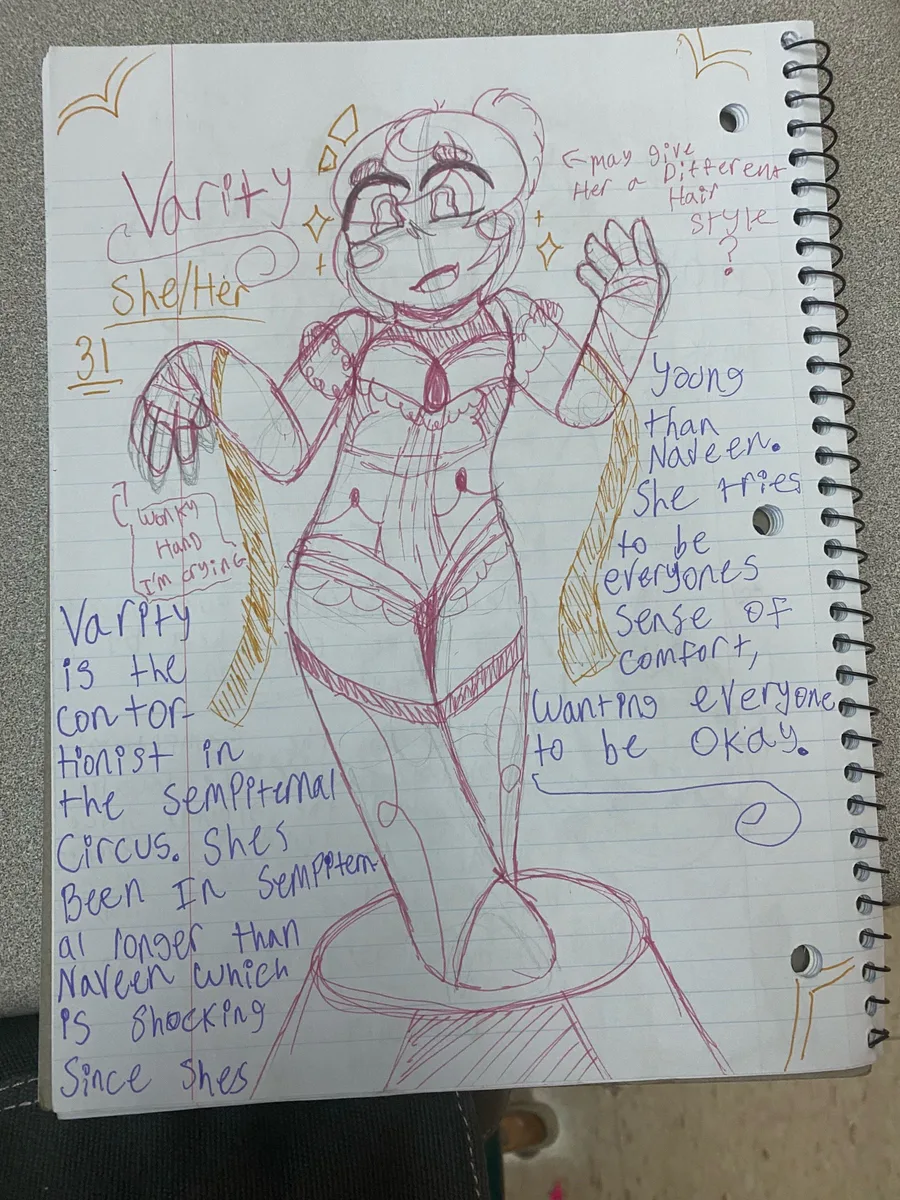 Varity
She/Her
31
<-may give
Her a Different
Hair
style
?
Wonky
Hand
I'm crying
Varity
is the
contor-
tionist in
the sempiternal
Circus. Shes
Been In sempitern-
al longer than
Naveen which
is shocking
Since shes
Young
than
Naveen.
She tries
to be
everyones
sense of
comfort,
Wanting everyone
to be okay.